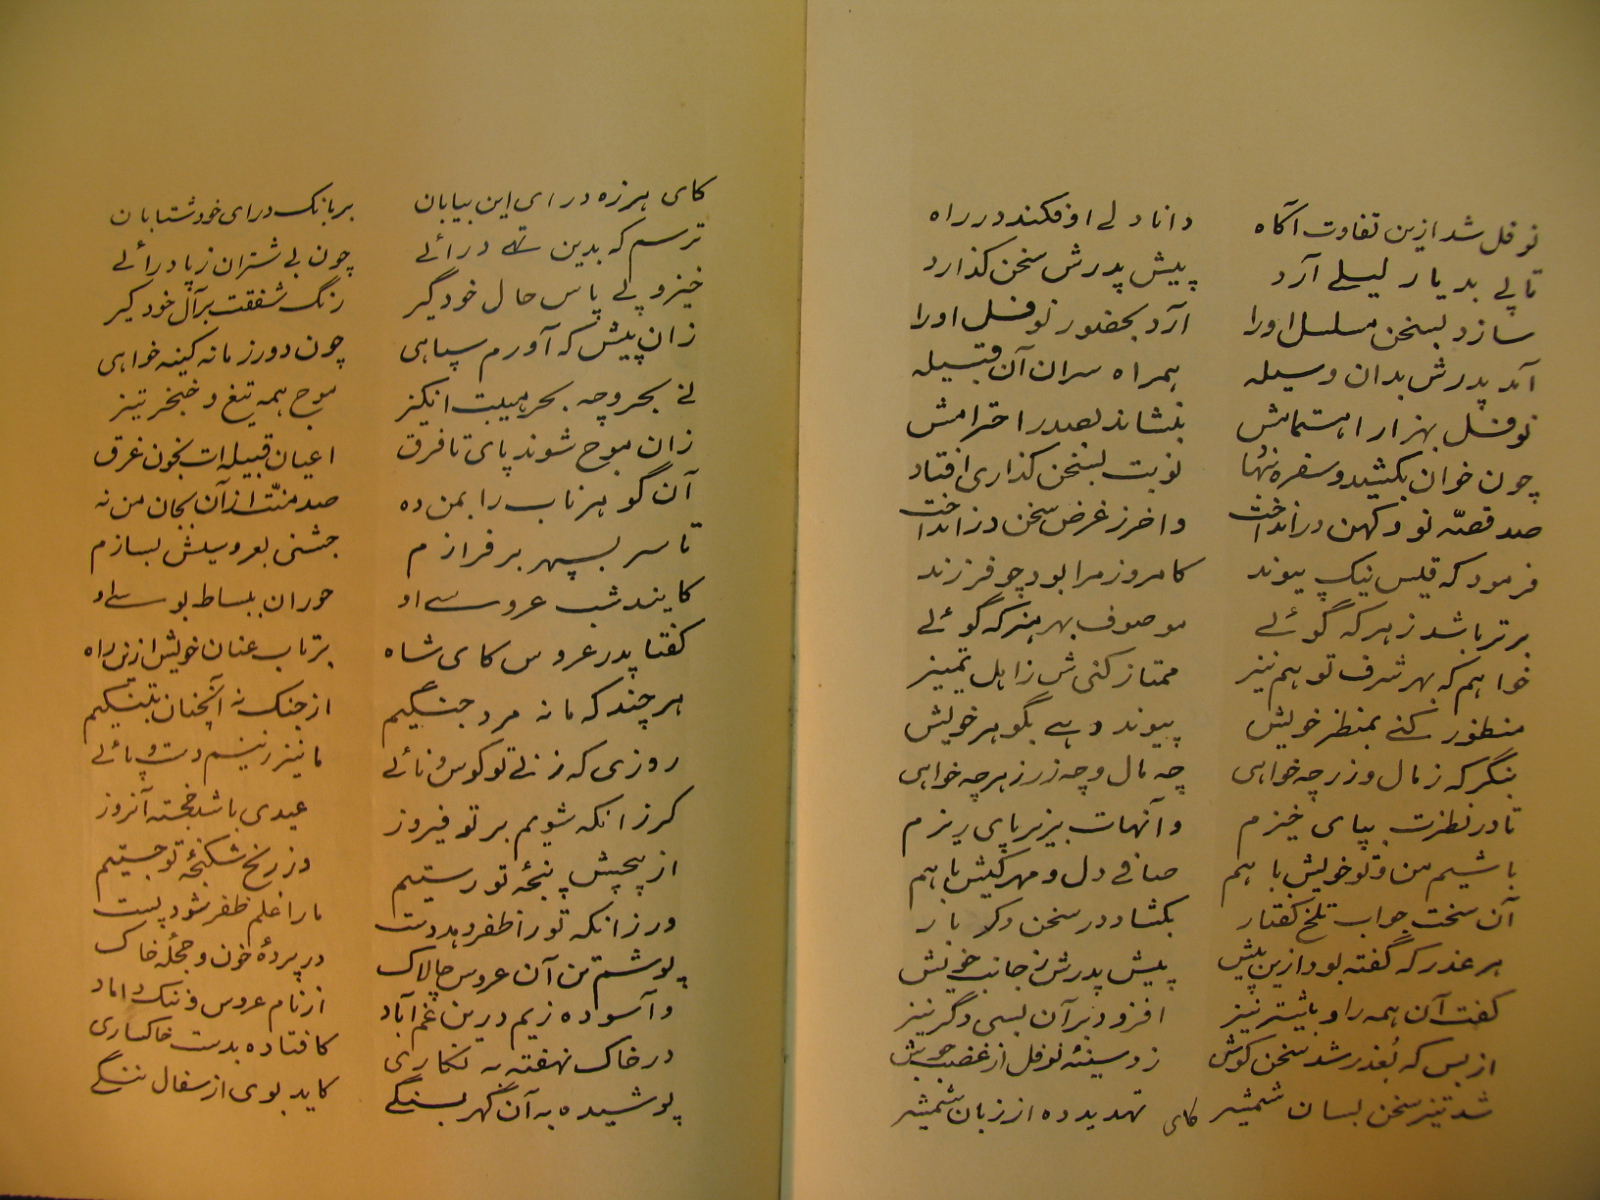 نوفل شد ازین تفاوت آگاه دانا دلے او فکند در راه
تا پے بدیار لیلے آرد پیش پدرش سخن گذارد
سازد بسخن مسلسل او را آرد بحضور نوفل او را
آمد پدرش بدان وسیله همراه سران آن قبیله
نوفل بهزار اهتمامش بنشاند بصدر احترامش
چون خوان بکشید و سفره بنهاد نوبت بسخن گذاری افتاد
صد قصّه نو و کهن در انداخت واخر ز غرض سخن در انداخت
فرمود که قیس نیک پیوند کامروز مرا بود چو فرزند
برتر باشد ز هر که گوئے موصوف بهر هنر که گوئے
خواهم که بهر شرف تو هم نیز ممتاز کنی ش ز اهل تمیز
منظور کنے بمنظر خویش پیوند دهے بگوهر خویش
بنگر که ز مال و زر چه خواهی چه مال و چه زر ز هر چه خواهی
تا در نظرت بپای خیزم وآنهات بزیر پای ریزم
باشیم من و تو خویش با هم صافے دل و مهر کیش با هم
آن سخت جواب تلخ گفتار بکشاد در سخن دگر بار
هر عذر که گفته بود ازین پیش پیش پدرش ز جانب خویش
گفت آن همه را و بیشتر نیز افزود بر آن بسی دگر نیز
از بس که بعذر شد سخن کوش زد سینهٔ نوفل از غضب جوش
شد تیز سخن بسان شمشیر تهدید ده از زبان شمشیر
کای
کای هرزه درای این بیابان بر بانگ درای خود شتابان
ترسم که بدین تهے درائے چون بے شتران ز پا درائے
خیز و پے پاس حال خود گیر رنگ شفقت بر آل خود گیر
زان پیش که آورم سپاهی چون دور زمانه کینه خواهی
نے بحر و چه بحر هیبت انگیز موج همه تیغ و خنجر تیز
زان موج شوند پای تا فرق اعیان قبیله ات بخون غرق
آن گوهر ناب را بمن ده صد منّت از آن بجان من نه
تا سر بسپهر بر فرازم جشنی بعروسیش بسازم
کایند شب عروسے او حوران ببساط بوسے او
گفتا پدر عروس کای شاه بر تاب عنان خویش ازین راه
هر چند که ما نه مرد جنگیم از جنگ نه آنچنان بتنگیم
روزی که زنے تو کوس و نائے ما نیز زنیم دست و پائے
گر زانکه شویم بر تو فیروز عیدی باشد خجسته آنروز
از پیچش پنجهٔ تو رستیم وز رنج شکنجهٔ تو جستیم
ور زانکه تو را ظفر دهد دست ما را علم ظفر شود پست
پوشم من آن عروس چالاک در پردهٔ خون و حجلهٔ خاک
وآسوده زیم درین غم آباد از نام عروس و ننگ داماد
در خاک نهفته به نگاری کافتاده بدست خاکساری
پوشیده به آن گهر بسنگے کاید بوی از سفال ننگے